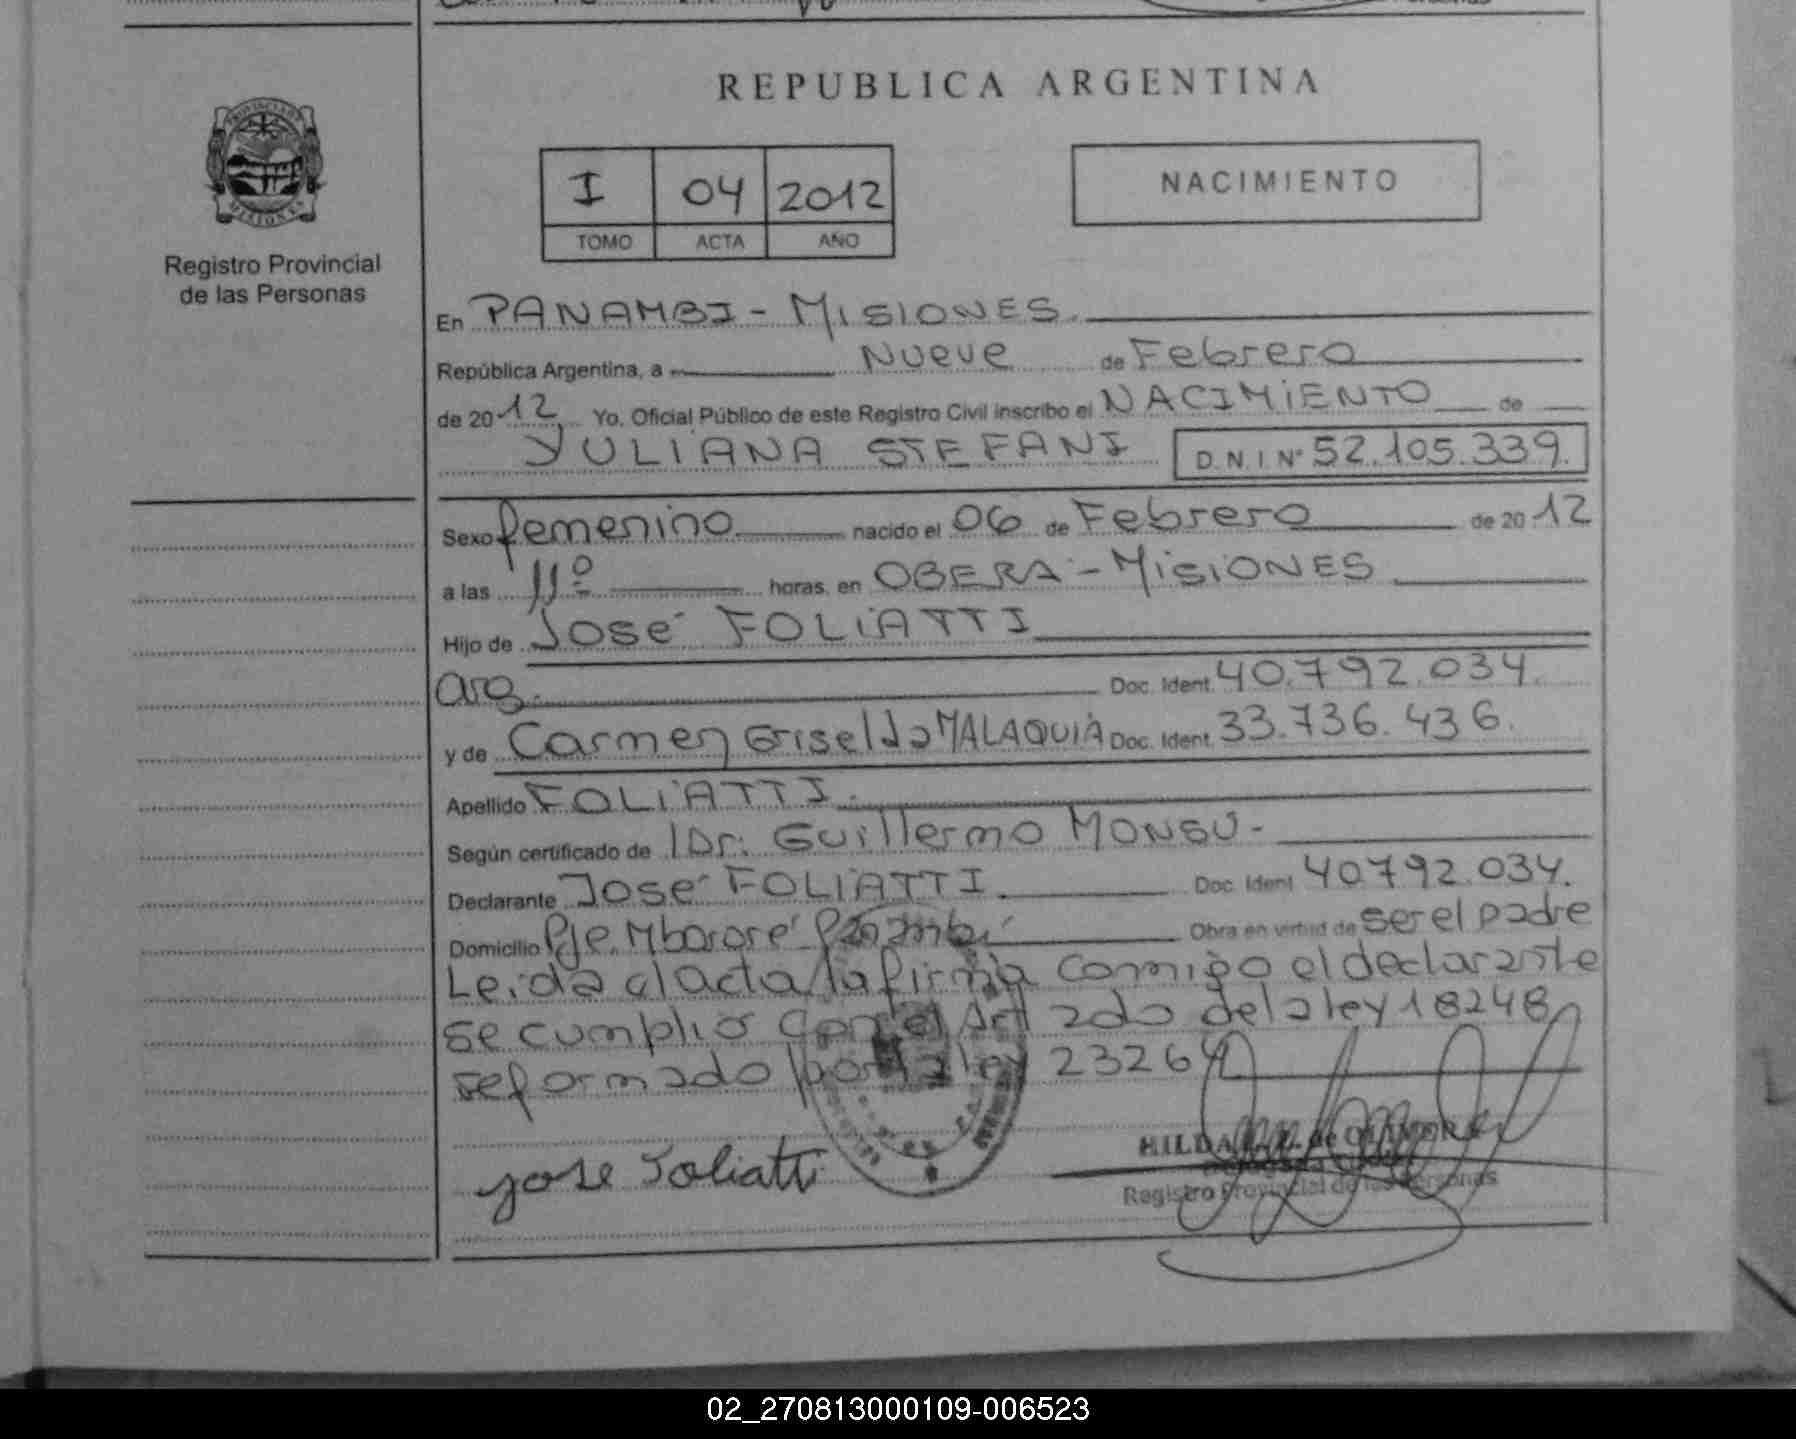 REPUBLICA ARGENTINA
PROVINCIA DE MISIONES
Registro Provincial
de las Personas
I 04 2012
TOMO ACTA AÑO
NACIMIENTO
En PANAMBI - MISIONES.
República Argentina, a Nueve de Febrero
de 2012 Yo. Oficial Público de este Registro Civil inscribo el NACIMIENTO de
YULIANA STEFANI D.N.I Nº 52.105.339.
Sexo femenino nacido el 06 de Febrero de 2012
a las 11º horas, en OBERA - MISIONES
Hijo de José FOLIATTI
arg. Doc. Ident. 40.792.034.
y de Carmen Griselda MALAQUIA Doc. Ident. 33.736.436.
Apellido FOLIATTI.
Según certificado de Dr. Guillermo MONSU-
Declarante José FOLIATTI. Doc. Ident 40792.034.
Domicilio Pje. Mbororé Panambi Obra en virtud de ser el padre
Leida el Acta la firma conmigo el declarante
se cumplio con el Art 2do de la ley 18248
reformado por la ley 23264
jose Foliatti
HILDA de
Registro Provincial de las Personas
02_270813000109-006523